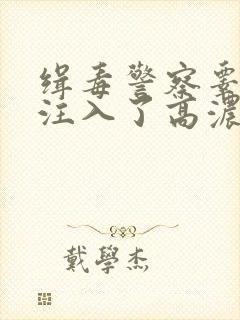 缉毒警察
注入了高濃
戴學杰